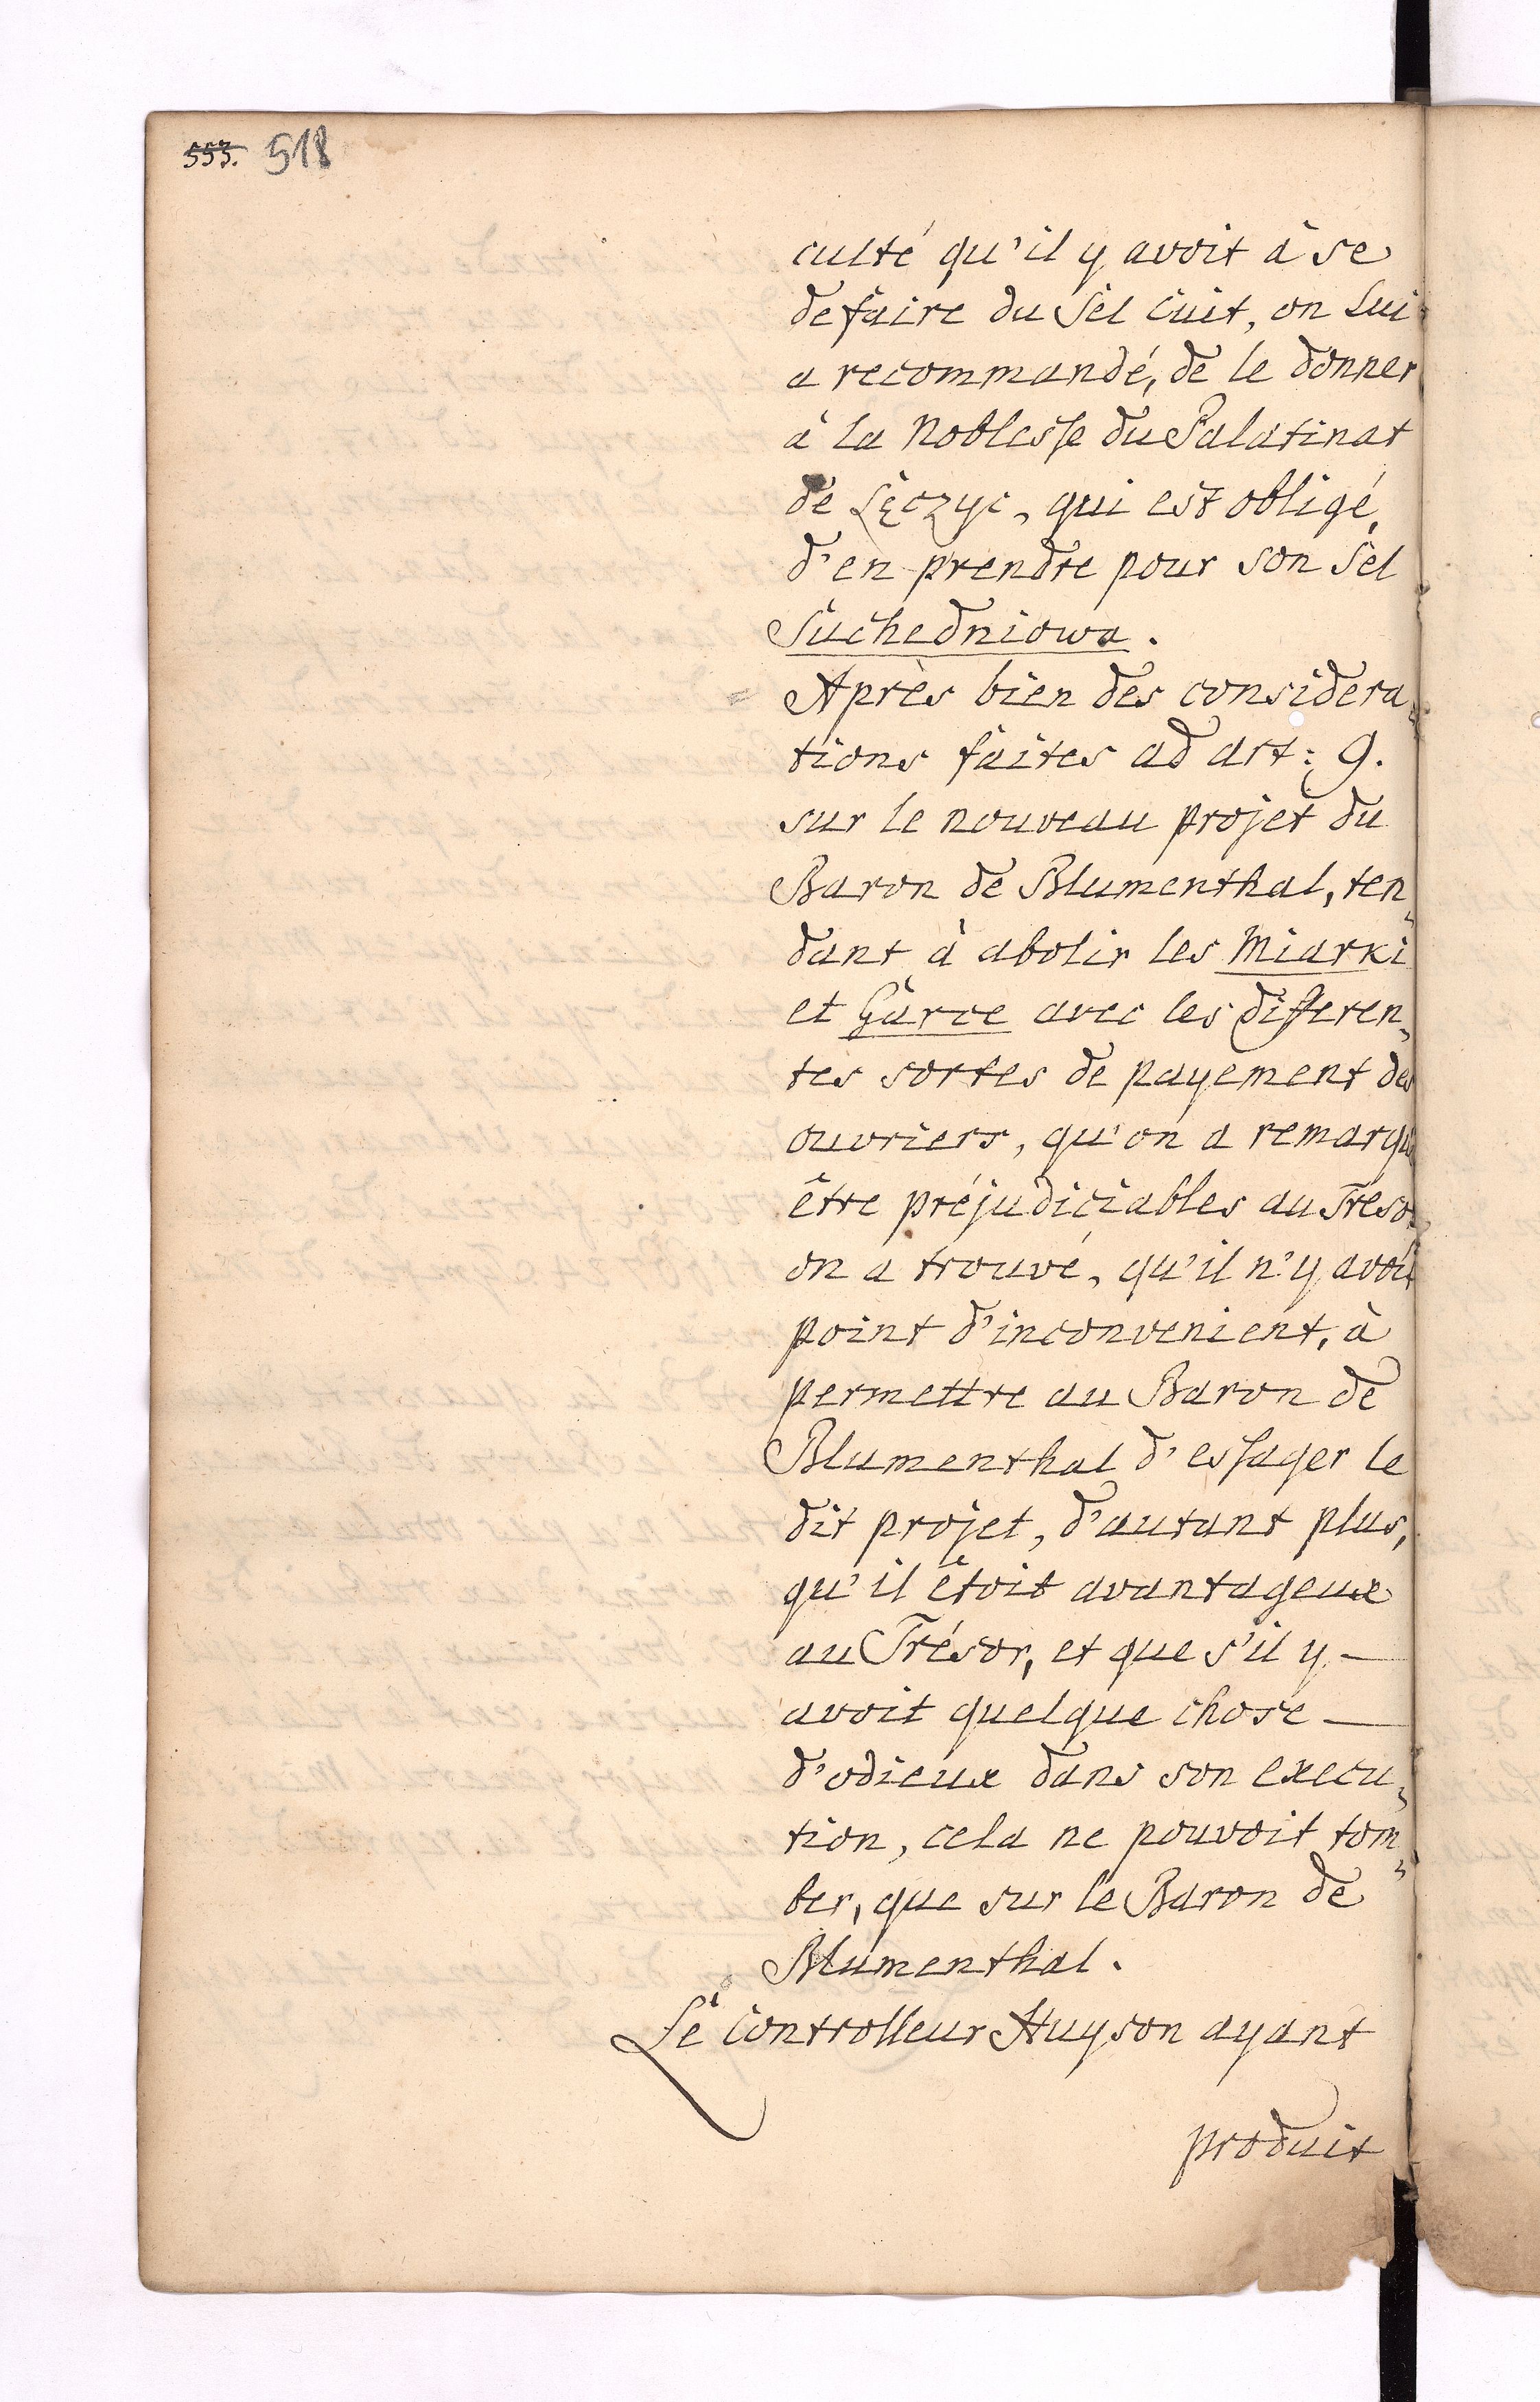 553. 518
culté qu'il y avoit à se
defaire du Sel cuit, on Lui
a recommandé, de le donner
à la Noblesse du Palatinat
de Lęczyc, qui est obligé,
d'en prendre pour son Sel
Suchedniowa.
Après bien des considera„
tions faites ad art: 9.
sur le nouveau projet du
Baron de Blumenthal, ten„
dant à abolir les Miarki
et Garce avec les differen„
tes sortes de payement des
ouvriers, qu'on a remarqu
être préjudiciables au Treso
on a trouvé, qu'il n'y avoit
point d'inconvenient, à
permettre au Baron de
Blumenthal d'essayer le
dit projet, d'autant plus,
qu'il êtoit avantageux
au Trésor, et que s'il y —
avoit quelque chose —
d'odieux dans son execu„
tion, cela ne pouvoit tom„
ber, que sur le Baron de
Blumenthal.
Le Controlleur Huyson ayant
produit